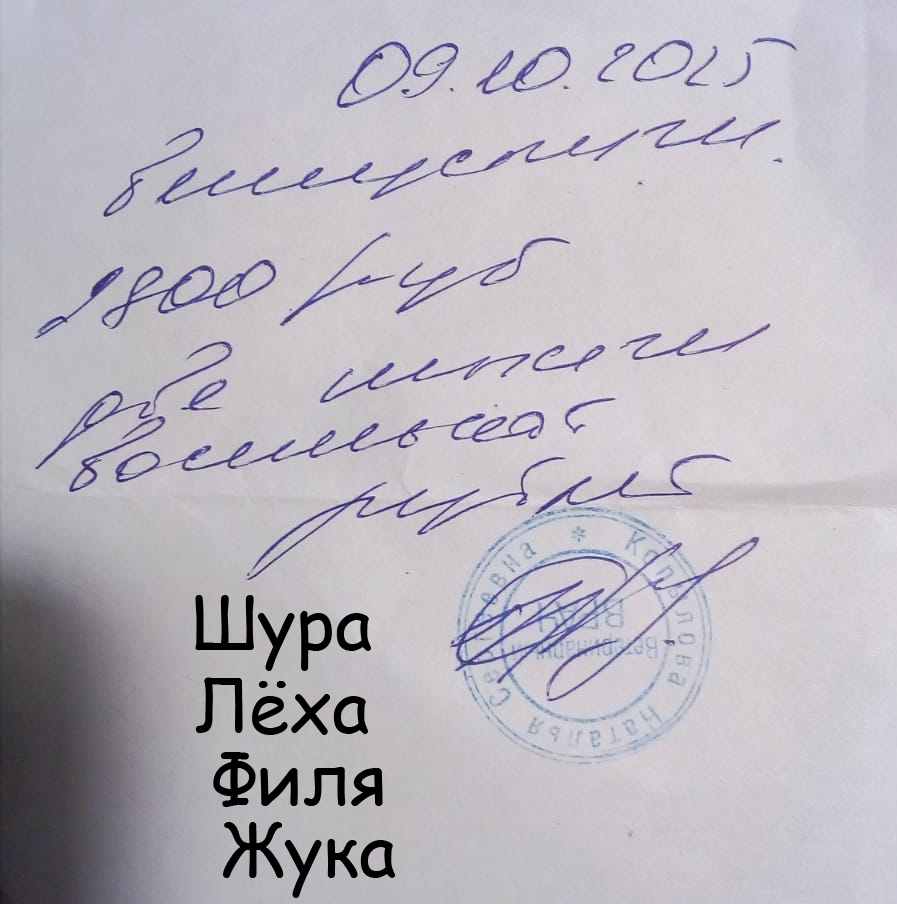 09.10.2025
2800 руб
две тысячи
восемьсот
рублей
Копылова Наталья Сергеевна *
Ветеринарный
ВРАЧ
Шура
Лёха
Филя
Жука